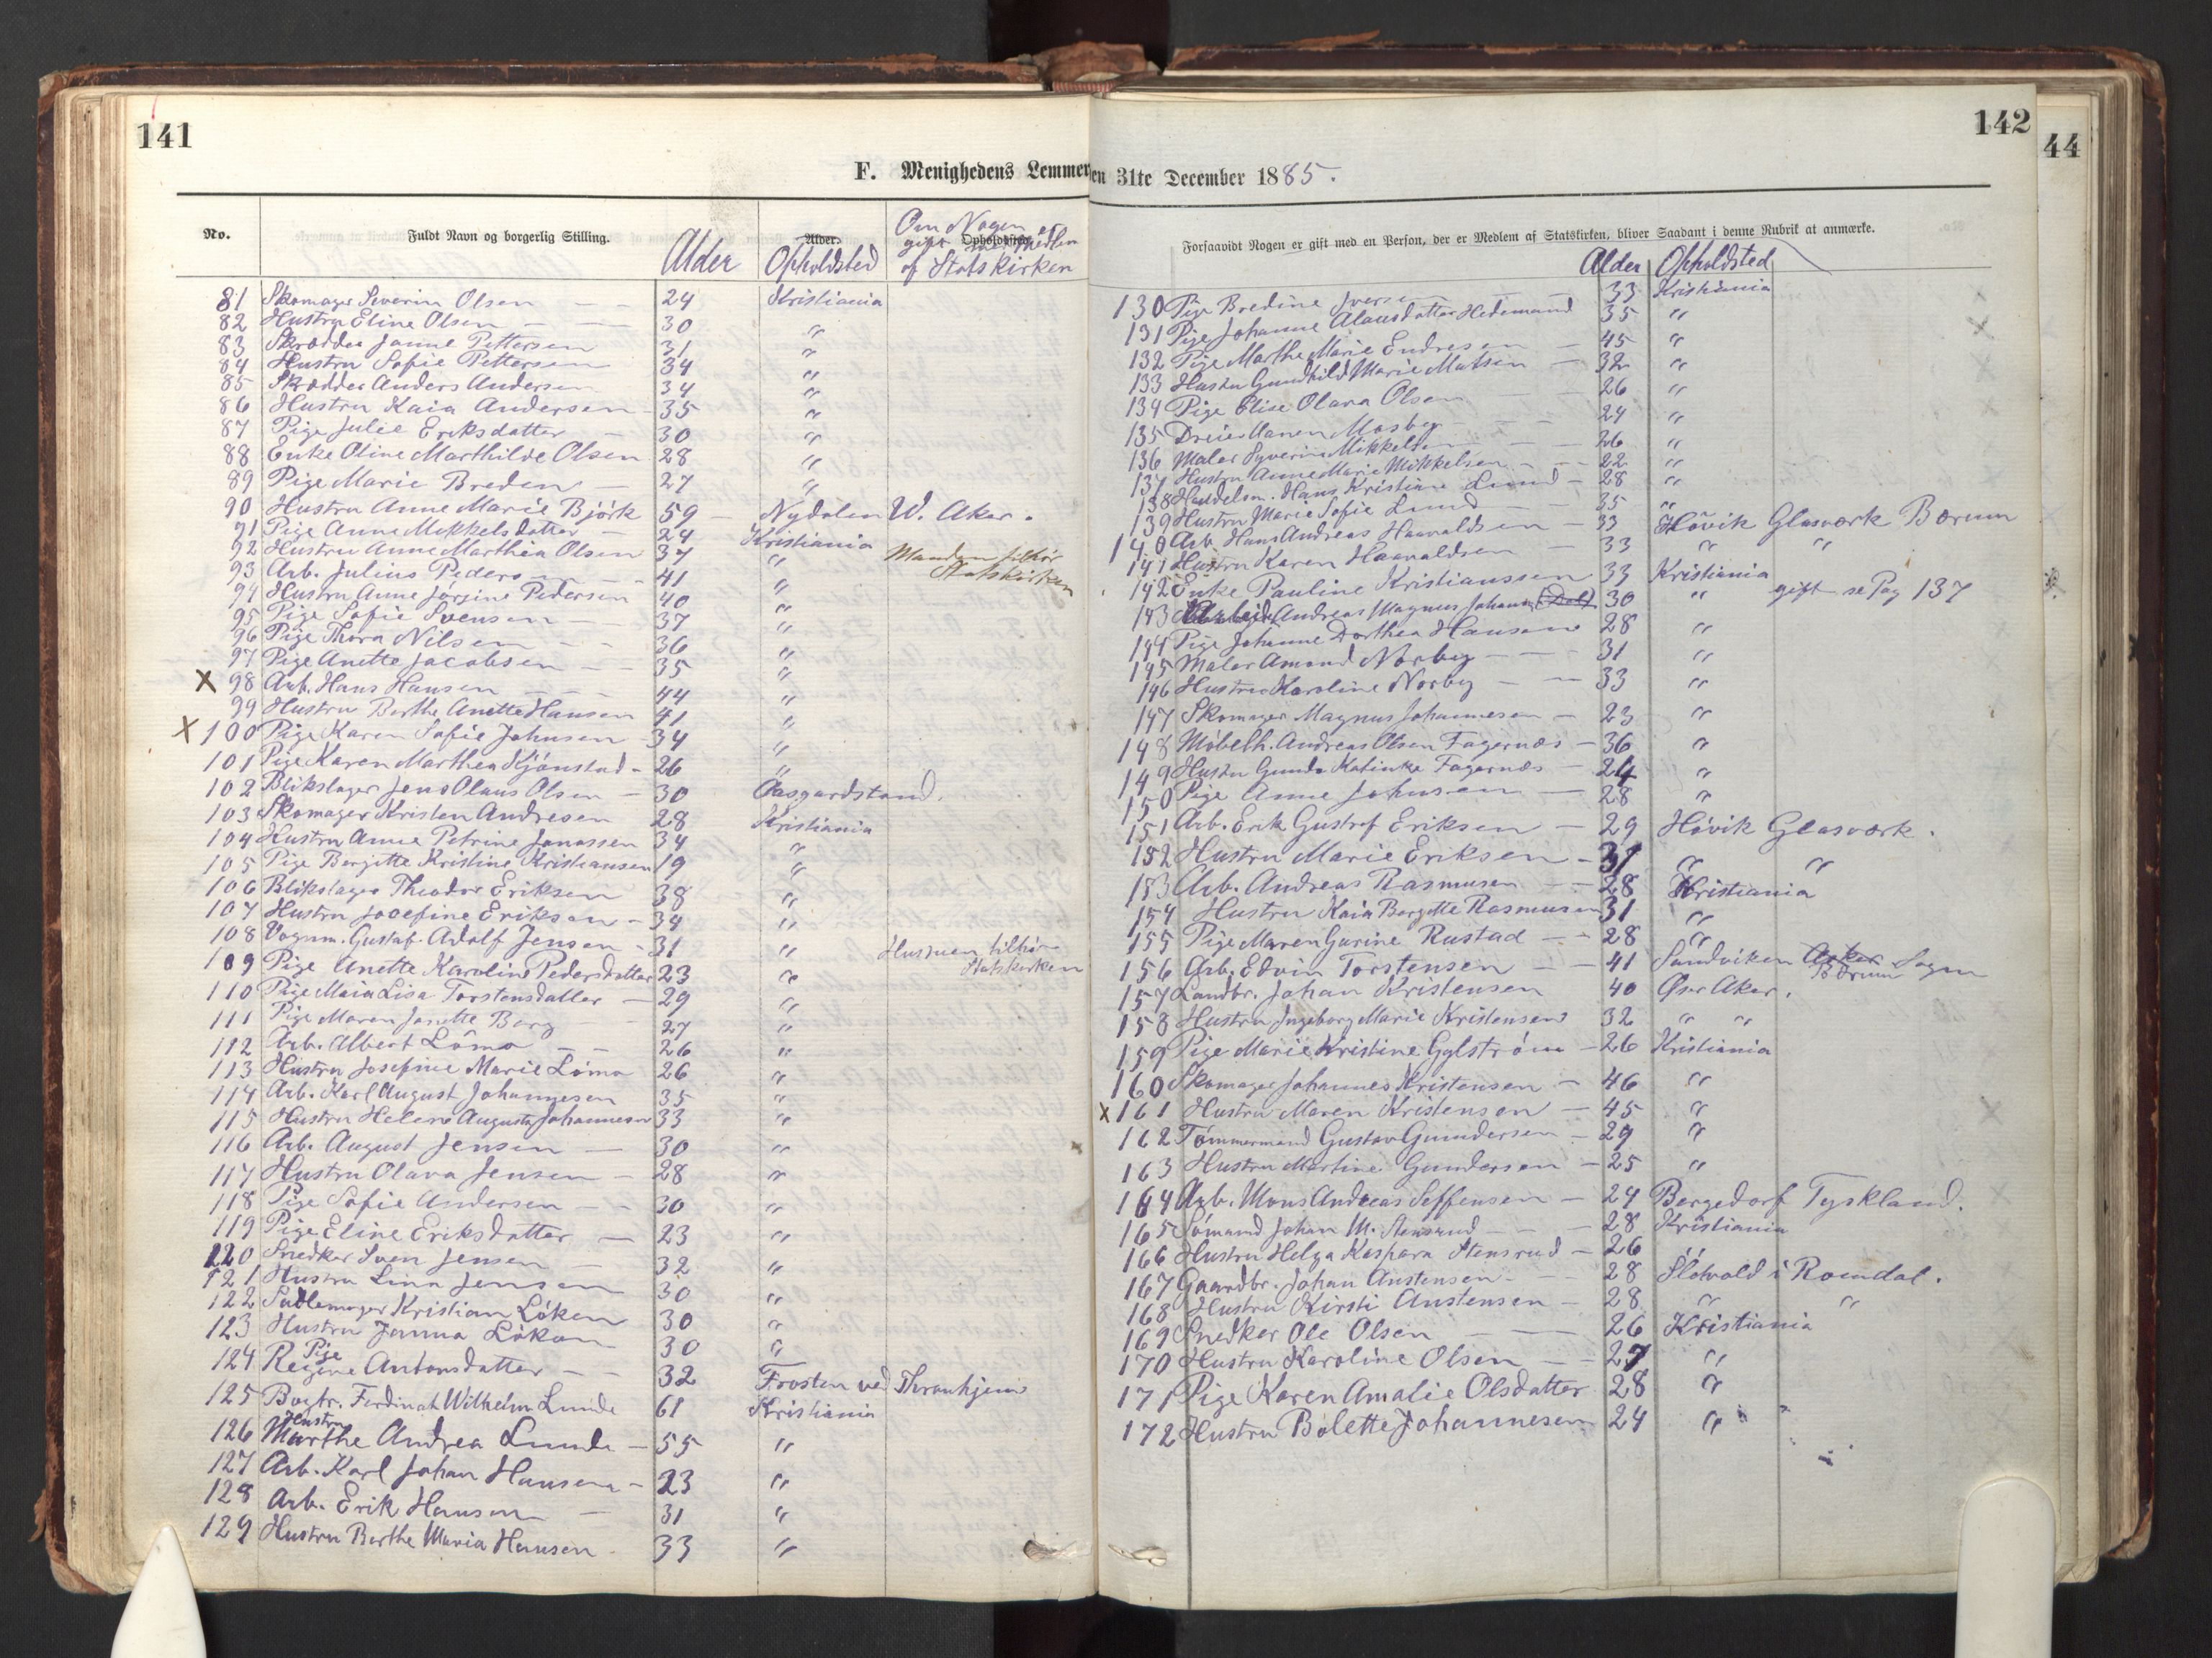 141
142
44
F. Menighedens Lemmer
en 31te December 1885.
No.
Fuldt Navn og borgerlig Stilling.
Alder
Alder.
Opholdsted
Om Nogen er
gift med Medlem
Opholdssted.
af Statskirken
81 Skomager Severin Olsen — — 24 Kristiania
82 Hustru Eline Olsen — — 30 "
83 Skrædder Janne Pettersen 31 "
84 Hustru Sofie Pettersen 34 "
85 Skrædder Anders Andersen 34 "
86 Hustru Kaia Andersen — 35 "
87 Pige Julie Eriksdatter — 30 "
88 Enke Oline Marthilde Olsen 28 "
89 Pige Marie Breden — 27 "
90 Hustru Anne Marie Bjørk 59 — Nydalen V. Aker.
91 Pige Anne Mikkelsdatter — 24 Kristiania
92 Hustru Anne Marthea Olsen 37 " Manden tilhør Statskirken
93 Arb. Julius Peders 41 "
94 Hustru Anne Jørgine Pedersen 40 "
95 Pige Sofie Svensen — 37 "
96 Pige Thora Nilsen — — 36 "
97 Pige Anette Jacobsen — — 35 "
X 98 Arb. Hans Hansen — — — 44 "
99 Hustru Berthe Anette Hansen 41 "
X 100 Pige Karen Sofie Johnsen — 34 "
101 Pige Karen Marthea Kjønstad - 26 "
102 Blikslager Jens Olaus Olsen — 30 Aasgardstand.
103 Skomager Kristen Andresen 28 Kristiania
104 Hustru Anne Petrine Jonassen 34 "
105 Pige Bergitte Kristine Kristiansen 19 "
106 Blikslager Theodor Eriksen 38 "
107 Hustru Josefine Eriksen — 34 "
108 Vognm. Gustaf Adolf Jensen - 31 " Hustruen tilhør Statskirken
109 Pige Anette Karoline Pedersdatter 23 "
110 Pige Maia Lisa Torstensdatter — 29 "
111 Pige Maren Janette Berg 27 "
112 Arb. Albert Lømo — — 26 "
113 Hustru Josefine Marie Lømo 26 "
114 Arb. Karl August Johannesen 35 "
115 Hustru Helene Augusta Johannesen 33 "
116 Arb. August Jensen — 30 "
117 Hustru Olava Jensen — 28 "
118 Pige Sofie Andersen — - 30 "
119 Pige Eline Eriksdatter — 23 "
120 Snedker Sven Jensen — 32 "
121 Hustru Lina Jensen 30 "
122 Sadlemager Kristian Løken 30 "
123 Hustru Janna Løken 30 "
124 Pige Regine Antonsdatter — 32 Frosten ved Thronhjem
125 Bogtr. Ferdinat Wilhelm Lunde 61 Kristiania
126 Hustru Marthe Andrea Lunde — 55 "
127 Arb. Karl Johan Hansen — 23 "
128 Arb. Erik Hansen — 31 "
129 Hustru Berthe Maria Hansen 33 "
Forsaavidt Nogen er gift med en Person, der er Medlem af Statskirken, bliver Saadant i denne Rubrik at anmærke.
Alder Opholdsted
130 Pige Bredine Iversen — — 33 Kristiania
131 Pige Johanne Alausdatter Hedemand 35 "
132 Pige Marthe Marie Endresen — 45 "
133 Hustru Gundhild Marie Matsen — 32 "
134 Pige Elise Olava Olsen — 26 "
135 Dreier Maren Mosby — 24 "
136 Maler Syverin Mikkelsen — — 26 "
137 Hustru Anne Marie Mikkelsen — — 22 "
138 Handelsm. Hans Kristian Lund — 28 "
139 Hustru Marie Sofie Lund — 35 "
140 Arb. Hans Andreas Haavaldsen — 33 Høvik Glasværk Bærum
141 Hustru Karen Haavaldsen — 33 " "
142 Enke Pauline Kristianssen 33 Kristiania
143 Arbeider Andreas Magnus Johans (Dal) 30 " gift se Pag 137
144 Pige Johanne Dorthea Hansen 28 "
145 Maler Amand Norby — — 31 "
146 Hustru Karoline Norby — — 33 "
147 Skomager Magnus Johannesen — 23 "
148 Møbelh. Andreas Olsen Fagernæs — 36 "
149 Hustru Gunda Katinka Fagernæs — 24 "
150 Pige Anne Johnsen — 28 "
151 Arb. Erik Gustaf Eriksen — 29 Høvik Glasværk.
152 Hustru Marie Eriksen — 31 " "
153 Arb. Andreas Rasmusen — — 28 Kristiania
154 Hustru Kaia Bergitte Rasmusen 31 "
155 Pige Maren Gurine Rustad — - 28 "
156 Arb. Edvin Torstensen — — 41 Sandviken Asker Bærum Sogn
157 Landbr. Johan Kristensen 40 Øsr Aker.
158 Hustru Ingeborg Marie Kristensen 32 " "
159 Pige Marie Kristine Gylstrøm — 26 Kristiania
160 Skomager Johannes Kristensen — 46 "
X 161 Hustru Maren Kristensen — 45 "
162 Tømmermand Gustav Gundersen — 29 "
163 Hustru Martine Gundersen — 25 "
164 Arb. Mons Andreas Seffensen — 24 Bergedorf Tyskland.
165 Sømand Johan M. Stensrud — — 28 Kristiania
166 Hustru Helga Kaspara Stensrud — 26
167 Gaardbr. Johan Austensen — — 28 Slotvold i Romdal.
168 Hustru Kirsti Austensen — 28 " "
169 Snedker Ole Olsen — — 26 Kristiania
170 Hustru Karoline Olsen — — 27 "
171 Pige Karen Amalie Olsdatter 28 "
172 Hustru Bolette Johannesen 24 "